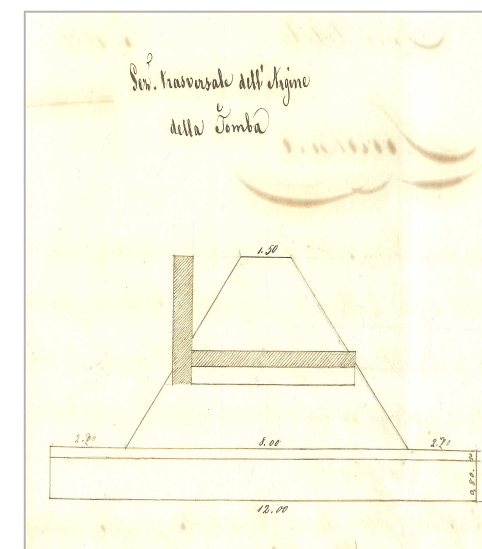 Sez.ᵉ trasversale dell' Argine
della Tomba
1.50
8.00
12.00
0.80.